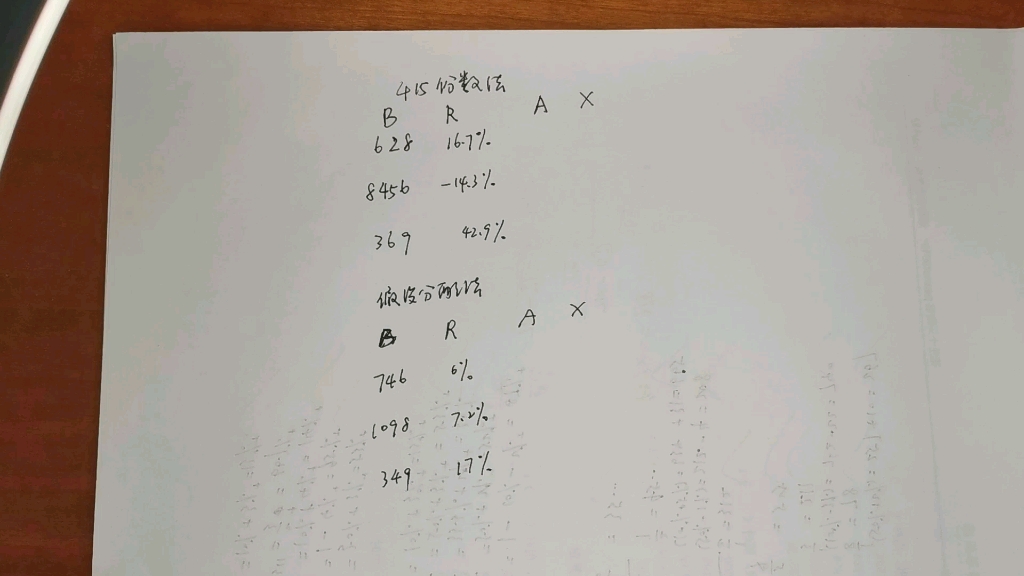 415份数法
B R A X
628 16.7%
8456 -14.3%
369 42.9%
假设分配法
B R A X
746 6%
1098 7.2%
349 17%